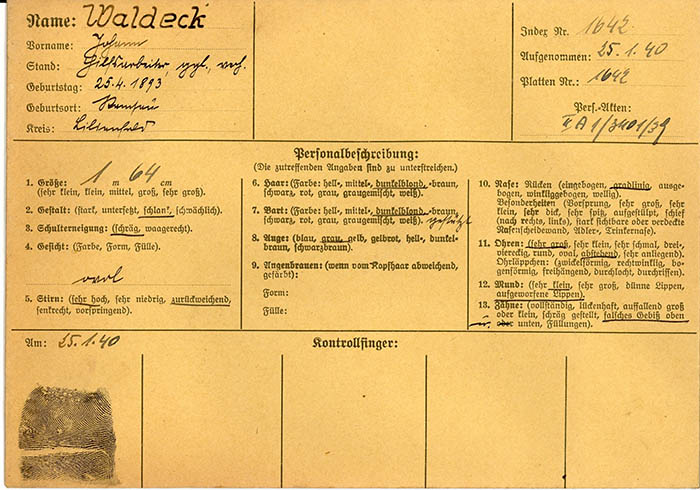 Name: Waldeck
Vorname: Johann
Stand: Hilfsarbeiter, ggl., verh.
Geburtstag: 25.4. 1893
Geburtsort:
Kreis: Lilienfeld
Index Nr. 1642
Aufgenommen: 25.1.40
Platten Nr.: 1642
Pers.-Akten:
II A 1/3401/39
Personalbeschreibung:
(Die zutreffenden Angaben sind zu unterstreichen.)
1. Größe: 1 m 64 cm
(sehr klein, klein, mittel, groß, sehr groß).
2. Gestalt: (stark, untersetzt, schlank, schwächlich).
3. Schulterneigung: (schräg, waagerecht).
4. Gesicht: (Farbe, Form, Fülle).
oval
5. Stirn: (sehr hoch, sehr niedrig, zurückweichend,
senkrecht, vorspringend).
6. Haar: (Farbe: hell-, mittel-, dunkelblond, -braun,
schwarz, rot, grau, graugemischt, weiß).
7. Bart: (Farbe: hell-, mittel-, dunkelblond, -braun,
schwarz, rot, grau, graugemischt, weiß). gestutzt
8. Auge: (blau, grau, gelb, gelbrot, hell-, dunkel-
braun, schwarzbraun).
9. Augenbrauen: (wenn vom Kopfhaar abweichend,
gefärbt):
Form:
Fülle:
10. Nase: Rücken (eingebogen, gradlinig, ausge-
bogen, winkliggebogen, wellig).
Besonderheiten (Vorsprung, sehr groß, sehr
klein, sehr dick, sehr spitz, aufgestülpt, schief
(nach rechts, links), stark sichtbare oder verdeckte
Nasenscheidewand, Adler-, Trinkernase).
11. Ohren: (sehr groß, sehr klein, sehr schmal, drei-,
viereckig, rund, oval, abstehend, sehr anliegend).
Ohrläppchen: (zwickelförmig, rechtwinklig, bo-
genförmig, freihängend, durchlocht, durchriffen).
12. Mund: (sehr klein, sehr groß, dünne Lippen,
aufgeworfene Lippen).
13. Zähne: (vollständig, lückenhaft, auffallend groß
oder klein, schräg gestellt, falsches Gebiß oben
u. oder unten, Füllungen).
Am: 25.1.40
Kontrollfinger: